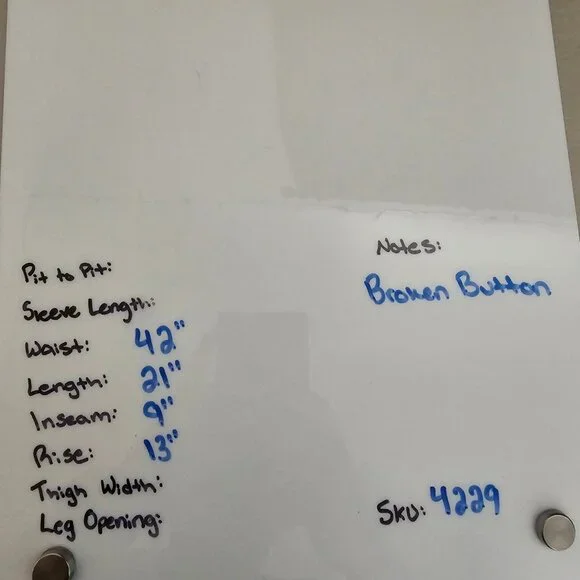 Pit to Pit:
Sleeve Length:
Waist: 42"
Length: 21"
Inseam: 9"
Rise: 13"
Thigh Width:
Leg Opening:
Notes:
Broken Button
SKU: 4229